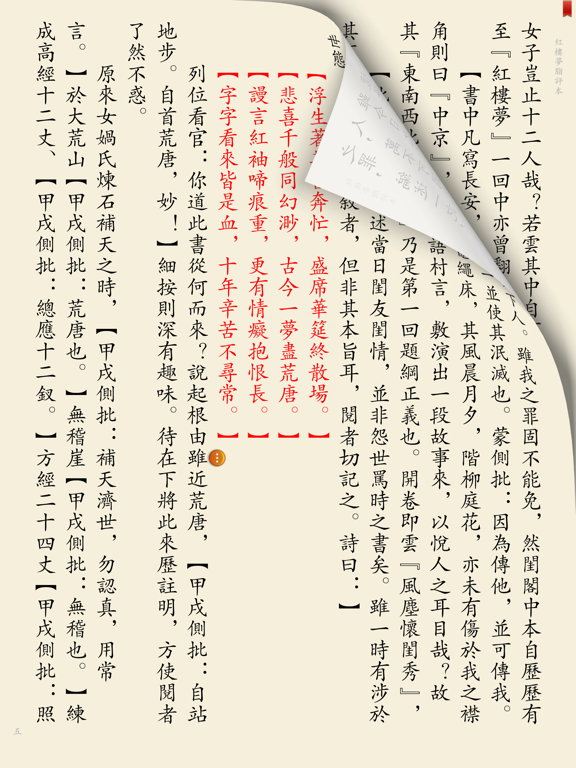 紅樓夢脂評本
女子豈止十二人哉？若雲其中自
雖我之罪固不能免，然閨閣中本自歷歷有
至『紅樓夢』一回中亦曾翻
並使其泯滅也。蒙側批：因為傳他，並可傳我。
【書中凡寫長安，
繩床，其風晨月夕，階柳庭花，亦未有傷於我之襟
角則曰『中京』，
語村言，敷演出一段故事來，以悅人之耳目哉？故
其『東南西
乃是第一回題綱正義也。開卷即雲『風塵懷閨秀』，
述當日閨友閨情，並非怨世罵時之書矣。雖一時有涉於
世態
敘者，但非其本旨耳，閱者切記之。詩曰：】
【浮生著 奔忙，盛席華筵終散場。】
【悲喜千般同幻渺，古今一夢盡荒唐。】
【謾言紅袖啼痕重，更有情癡抱恨長。】
【字字看來皆是血，十年辛苦不尋常。】
列位看官：你道此書從何而來？說起根由雖近荒唐，【甲戌側批：自站
地步。自首荒唐，妙！】細按則深有趣味。待在下將此來歷註明，方使閱者
了然不惑。
原來女媧氏煉石補天之時，【甲戌側批：補天濟世，勿認真，用常
言。】於大荒山【甲戌側批：荒唐也。】無稽崖【甲戌側批：無稽也。】練
成高經十二丈、【甲戌側批：總應十二釵。】方經二十四丈【甲戌側批：照
五